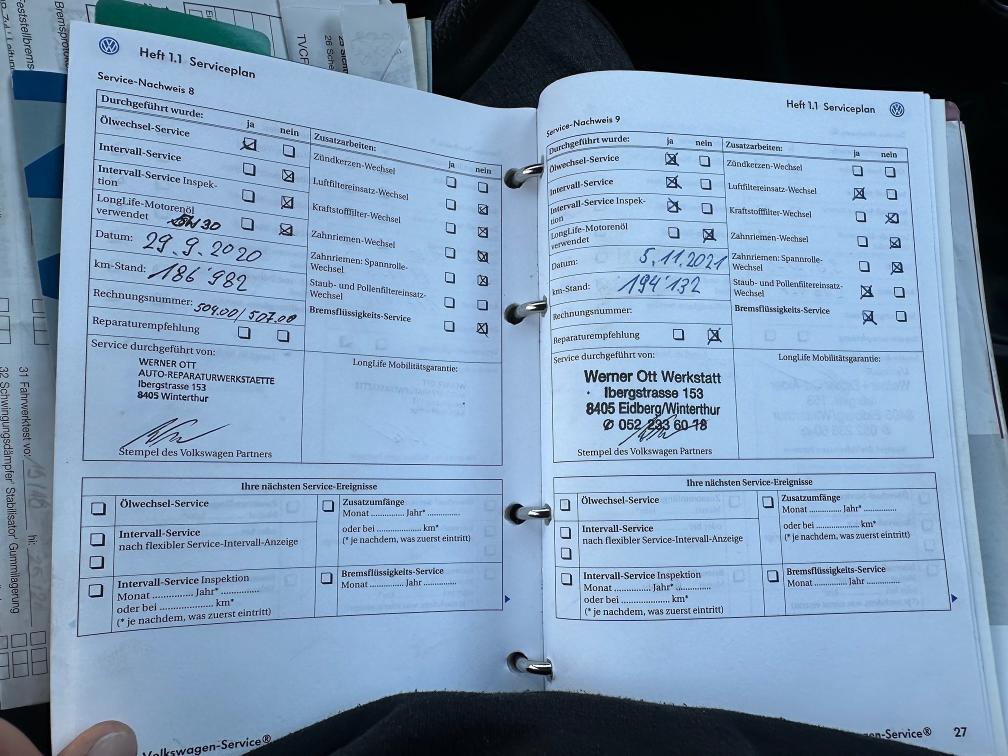 Heft 1.1 Serviceplan
Service-Nachweis 8
Durchgeführt wurde:
ja nein
Ölwechsel-Service
Intervall-Service
Intervall-Service Inspek-
tion
LongLife-Motorenöl
verwendet
Datum: 29.9.2020
km-Stand: 186'982
Rechnungsnummer: 504.00/507.00
Reparaturempfehlung
Zusatzarbeiten:
ja nein
Zündkerzen-Wechsel
Luftfiltereinsatz-Wechsel
Kraftstofffilter-Wechsel
Zahnriemen-Wechsel
Zahnriemen: Spannrolle-
Wechsel
Staub- und Pollenfiltereinsatz-
Wechsel
Bremsflüssigkeits-Service
Service durchgeführt von:
WERNER OTT
AUTO-REPARATURWERKSTAETTE
Ibergstrasse 153
8405 Winterthur
Stempel des Volkswagen Partners
LongLife Mobilitätsgarantie:
Ihre nächsten Service-Ereignisse
Ölwechsel-Service
Intervall-Service
nach flexibler Service-Intervall-Anzeige
Intervall-Service Inspektion
Monat ............... Jahr* ...............
oder bei ..................... km*
(* je nachdem, was zuerst eintritt)
Zusatzumfänge
Monat ............ Jahr* ............
oder bei .................. km*
(* je nachdem, was zuerst eintritt)
Bremsflüssigkeits-Service
Monat ............... Jahr ............
Volkswagen-Service®
Heft 1.1 Serviceplan
Service-Nachweis 9
Durchgeführt wurde:
ja nein
Ölwechsel-Service
Intervall-Service
Intervall-Service Inspek-
tion
LongLife-Motorenöl
verwendet
Datum: 5.11.2021
km-Stand: 194'132
Rechnungsnummer:
Reparaturempfehlung
Zusatzarbeiten:
ja nein
Zündkerzen-Wechsel
Luftfiltereinsatz-Wechsel
Kraftstofffilter-Wechsel
Zahnriemen-Wechsel
Zahnriemen: Spannrolle-
Wechsel
Staub- und Pollenfiltereinsatz-
Wechsel
Bremsflüssigkeits-Service
Service durchgeführt von:
Werner Ott Werkstatt
Ibergstrasse 153
8405 Eidberg/Winterthur
✆ 052 233 60 18
Stempel des Volkswagen Partners
LongLife Mobilitätsgarantie:
Ihre nächsten Service-Ereignisse
Ölwechsel-Service
Intervall-Service
nach flexibler Service-Intervall-Anzeige
Intervall-Service Inspektion
Monat ............... Jahr* ...............
oder bei ..................... km*
(* je nachdem, was zuerst eintritt)
Zusatzumfänge
Monat ............ Jahr* ............
oder bei .................. km*
(* je nachdem, was zuerst eintritt)
Bremsflüssigkeits-Service
Monat ............... Jahr ............
en-Service® 27
31 Fahrwerktest vo:
32 Schwingungsdämpfer' Stabilisator' Gummilagerung